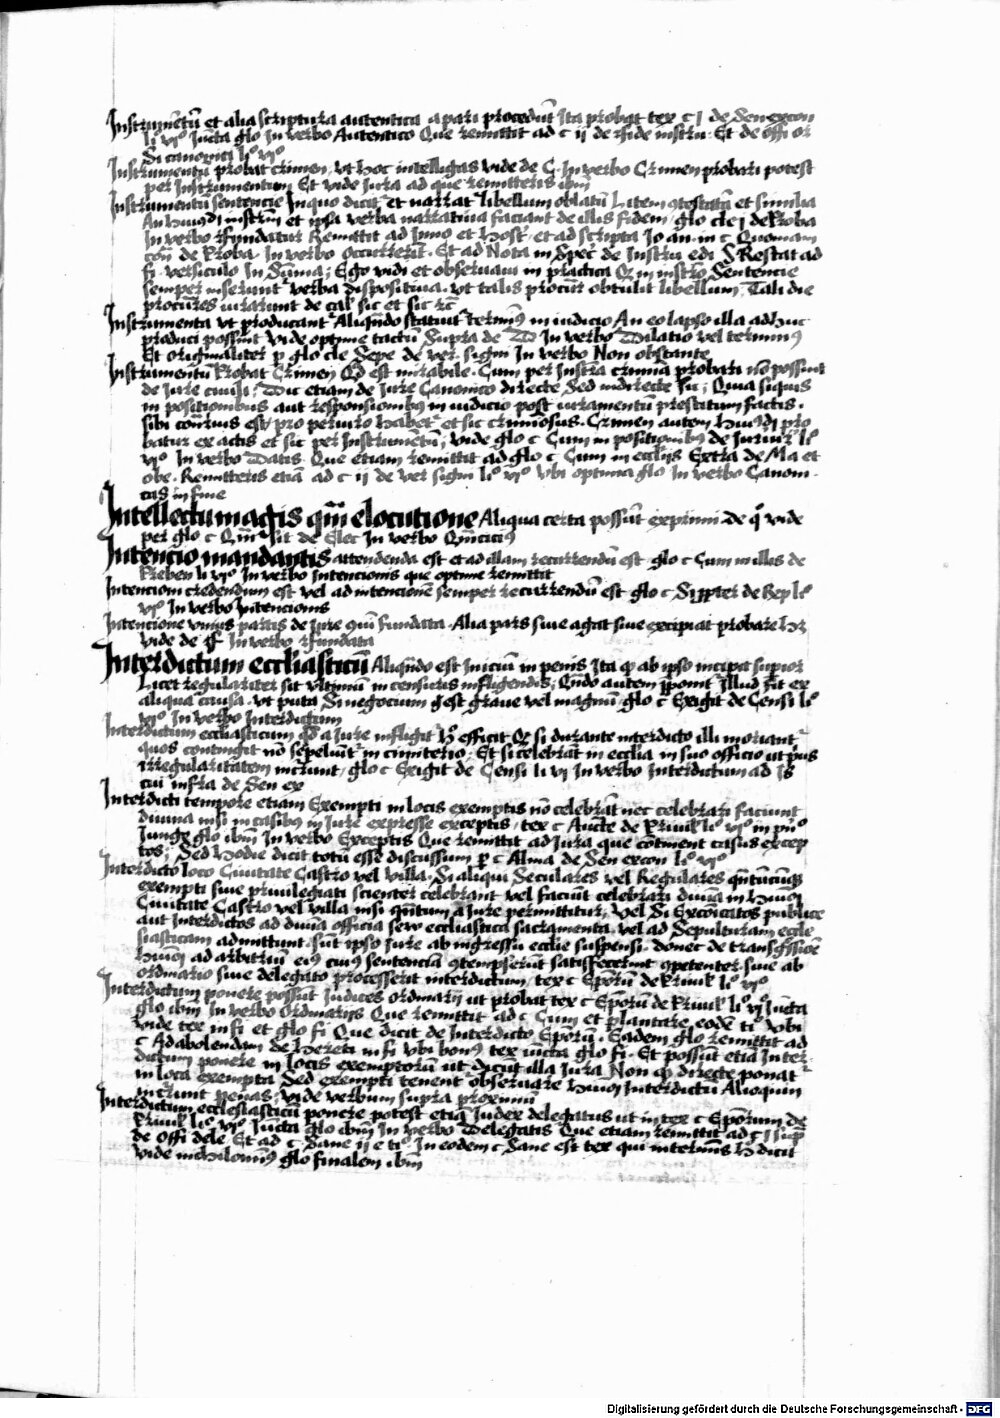 Instrumētū et alia scriptura autentica a pari procedūt Ita probat tex c j de Sen excon
li vjº Iūcta glo In verbo Autentico Que remittit ad c ij de fide instru· Et de offi or
Si canonici liº vjº
Instrumentū probat crimen, vt hoc intelligas vide de C· In verbo Crimen probari potest
per Instrumentum Et vide Iura ad que remitteris ibm
Instrumentū sentencie In quo dicit et narrat libellum oblatū Litem ꝯtestatā et similia
An huiꝰdi instrm et ista verba narratiua faciant de illis fidem, glo cle j de Proba
In verbo Remittit ad Inno et Host, et ad scripta Jo an· in c Quoniam
cōn de Proba· In verbo occurrerit· Et ad Nota in Spec de Instru edi § Restat ad
fi· versiculo In Sūma; Ego vidi et obseruaui in practica Qꝫ in instro Sentencie
semper inserunt verba dispositiua· vt talis procur obtulit libellum, Tali die
procures iurarunt de cal sic et sic
Instrumenta vt producant Aliqñdo statuit terminꝰ in iudicio An eo lapso illa adhuc
produci possūt Vide optime tactū Supra de D In verbo Dilatio vel terminꝰ
Et originaliter p glo cle Sepe de ver· signi In verbo Non obstante
Instrumentū Probat Crimen Qd est mirabile· Cum per Instra crimina probari nō possunt
de Iure ciuili, Duc etiam de Iure Canonico directe Sed indirecte sic; Quia siquis
in positionibus aut responsionibꝰ in iudicio post iuramentū prestitum factis·
sibi cōtrarius est, pro periuro habet et sic criminosus· Crimen autem huiꝰdi pro
batur ex actis et sic per Instrumētū, vide glo c Cum in positionibꝰ de Iureiur liº
vjº In verbo Datis· Que etiam remittit ad glo c Cum in ecclijs Extra de Ma et
obe· Remitteris etiā ad c ij de ver signi liº vjº Vbi optima glo In verbo Canoni·
cas in fine
Intellectu magis qm̄ elocutione Aliqua certa possūt exprimi de qº vide
per glo c Qm̄ Sit de Elec In verbo
Intencio mandantis attendenda est et ad illam recurrendū est glo c Cum in illis de
Preben li vjº In verbo Intencionis que optime remittit
Intencioni credendum est vel ad intencionē semper recurrendū est glo c Si pꝛter de Rep liº
vjº In verbo Intencionis
Intencione vniꝰ partis de Iure cōi Fundata· Alia pars siue agat siue excipiat probare hꝫ
vide de F In verbo Fundata
Interdictum eccliasticū Aliqñdo est Iniciū in penis Ita qꝫ ab ipso incipit superior
Licet regulariter sit vltimū in censuris infligendis; Qñdo autem ponit Illud fit ex
aliqua causa· vt puta Si negocium est graue vel magnū, glo c Exigit de Censi liº
vjº In verbo Interdictum
Interdictum ecclasticum qd a iure infligit Hº efficit Qꝫ si durante interdicto illi moriant
quos contingit nō sepeliūt in cimiterio; Et si celebrat in ecclia in suo officio ut prius
irregularitatem incurrunt, glo c Exigit de Censi li vj In verbo Interdictum ad Is
cui infra de Sen ex
Interdicti tempore etiam Exempti in locis exemptis nō celebrāt nec celebrari faciunt
diuina nisi in casibꝰ in Iure expresse exceptis, tex c Aucte de Priuil liº vjº in prº
Iunge glo ibm In verbo Exceptis Que remittit ad Iura que cōtinent casus excep
tos; Sed hodie dicit totū esse discussum p c Alma de Sen excon liº vjº
Interdicto loco Ciuitate Castro vel villa· Si aliqui Seculares vel Regulares qñtūcūqꝫ
exempti siue priuilegiati scienter celebrant vel faciūt celebrari diuina in huiꝰdi
Ciuitate Castro vel villa nisi qñtum a Iure permittitur, Vel Si Excōicatos publice
aut Interdictos ad diuina officia seu ecclasticā sacramenta· vel ad Sepulturam eccle
siasticam admittunt· sūt ipso Iure ab ingressū ecclie suspensi· donec de transgressiōe
huiꝰdi ad arbitriū eiꝰ cuiꝰ sentenciā ꝯtempserūt satisfecerint ꝯpetenter siue ab
ordinario siue delegato processerit interdictum, tex c Epōru de Priuil liº vjº
Interdictum ponere possūt Iudices ordinarij ut probat tex c Epōru de Priuil liº vjº Iūcta
glo ibm In verbo Ordinarijs Que remittit ad c Cum et plantare eodē tiº Vbi
vide tex in fi et glo fi Que dicit de Interdicto Epōru· Eadem glo remittit ad
c Ad abolendam de hereti in fi Vbi bonꝰ tex iūcta glo fi· Et possūt etiā Inter·
dictum ponere in locis exemptorū ut dicūt illa Iura Non qꝫ directe ponat
in loca exempta Sed exempti tenent obseruare huiꝰdi Interdictū Alioquin
incurrunt penas; vide verbum supra proximū
Interdictum ecclesiasticū ponere potest etiā Iudex delegatus ut in tex c Epōrum de
Priuil liº vjº Iūcta glo ibm In verbo Delegatis Que etiam remittit ad c j sup
de offi dele· Et ad c Sane ij e tº· In eodem c Sane est tex qui interimꝰ hº dicit
vide nichilominꝰ glo finalem ibm
Digitalisierung gefördert durch die Deutsche Forschungsgemeinschaft - DFG